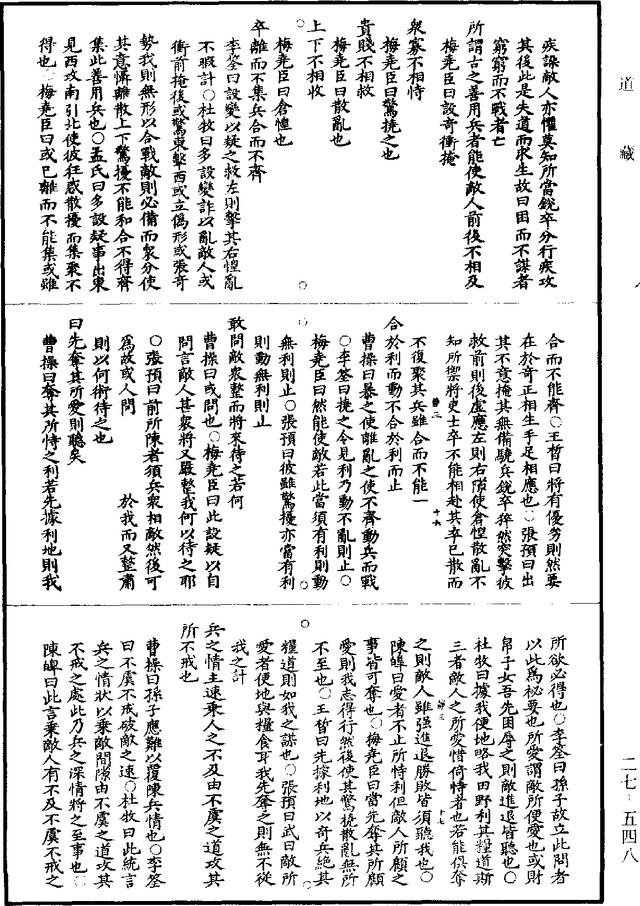 道藏
疾譟敵人亦懼莫知所當銳卒分行疾攻
其後此是失道而求生故曰困而不謀者
窮窮而不戰者亡
所謂古之善用兵者能使敵人前後不相及
梅堯臣曰設奇衝掩
衆寡不相恃
梅堯臣曰驚撓之也
貴賤不相救
梅堯臣曰散亂也
上下不相收
○梅堯臣曰倉惶也
卒離而不集兵合而不齊
李筌曰設變以疑之救左則擊其右惶亂
不暇計○杜牧曰多設變詐以亂敵人或
衝前掩後或驚東擊西或立偽形或張奇
勢我則無形以合戰敵則必備而衆分使
其意懾離散上下驚擾不能和合不得齊
集此善用兵也○孟氏曰多設疑事出東
見西攻南引北使彼狂惑散擾而集聚不
得也○梅堯臣曰或已離而不能集或雖
合而不能齊○王晳曰將有優劣則然要
在於奇正相生手足相應也○張預曰出
其不意掩其無備驍兵銳卒猝然突擊彼
救前則後虛應左則右隙使倉惶散亂不
知所禦將吏士卒不能相赴其卒已散而
不復聚其兵雖合而不能一
合於利而動不合於利而止
曹操曰暴之使離亂之使不齊動兵而戰
○李筌曰撓之令見利乃動不亂則止○
梅堯臣曰然能使敵若此當須有利則動
無利則止○張預曰彼雖驚擾亦當有利
則動無利則止
敢問敵衆整而將來待之若何
曹操曰或問也○梅堯臣曰此設疑以自
問言敵人甚衆將又嚴整我何以待之耶
○張預曰前所陳者須兵衆相敵然後可
為故或人問　　　於我而又整肅
則以何術待之也
曰先奪其所愛則聽矣
曹操曰奪其所恃之利若先據利地則我
所欲必得也○李筌曰孫子故立此問者
以此為祕要也所愛謂敵所便愛也或財
帛子女吾先困辱之則敵進退皆聽也○
杜牧曰據我便地略我田野利其糧道斯
三者敵人之所愛惜倚恃者也若能俱奪
之則敵人雖強進退勝敗皆須聽我也○
陳皞曰愛者不止所恃利但敵人所顧之
事皆可奪也○梅堯臣曰當先奪其所顧
愛則我志得行然後使其驚撓散亂無所
不至也○王晳曰先據利地以奇兵絕其
糧道則如我之謀也○張預曰武曰敵所
愛者便地與糧食耳我先奪之則無不從
我之計
兵之情主速乘人之不及由不虞之道攻其
所不戒也
曹操曰孫子應難以覆陳兵情也○李筌
曰不虞不戒破敵之速○杜牧曰此統言
兵之情狀以乘敵間隙由不虞之道攻其
不戒之處此乃兵之深情將之至事也○
陳皞曰此言乘敵人有不及不虞不戒之
二七－五四八